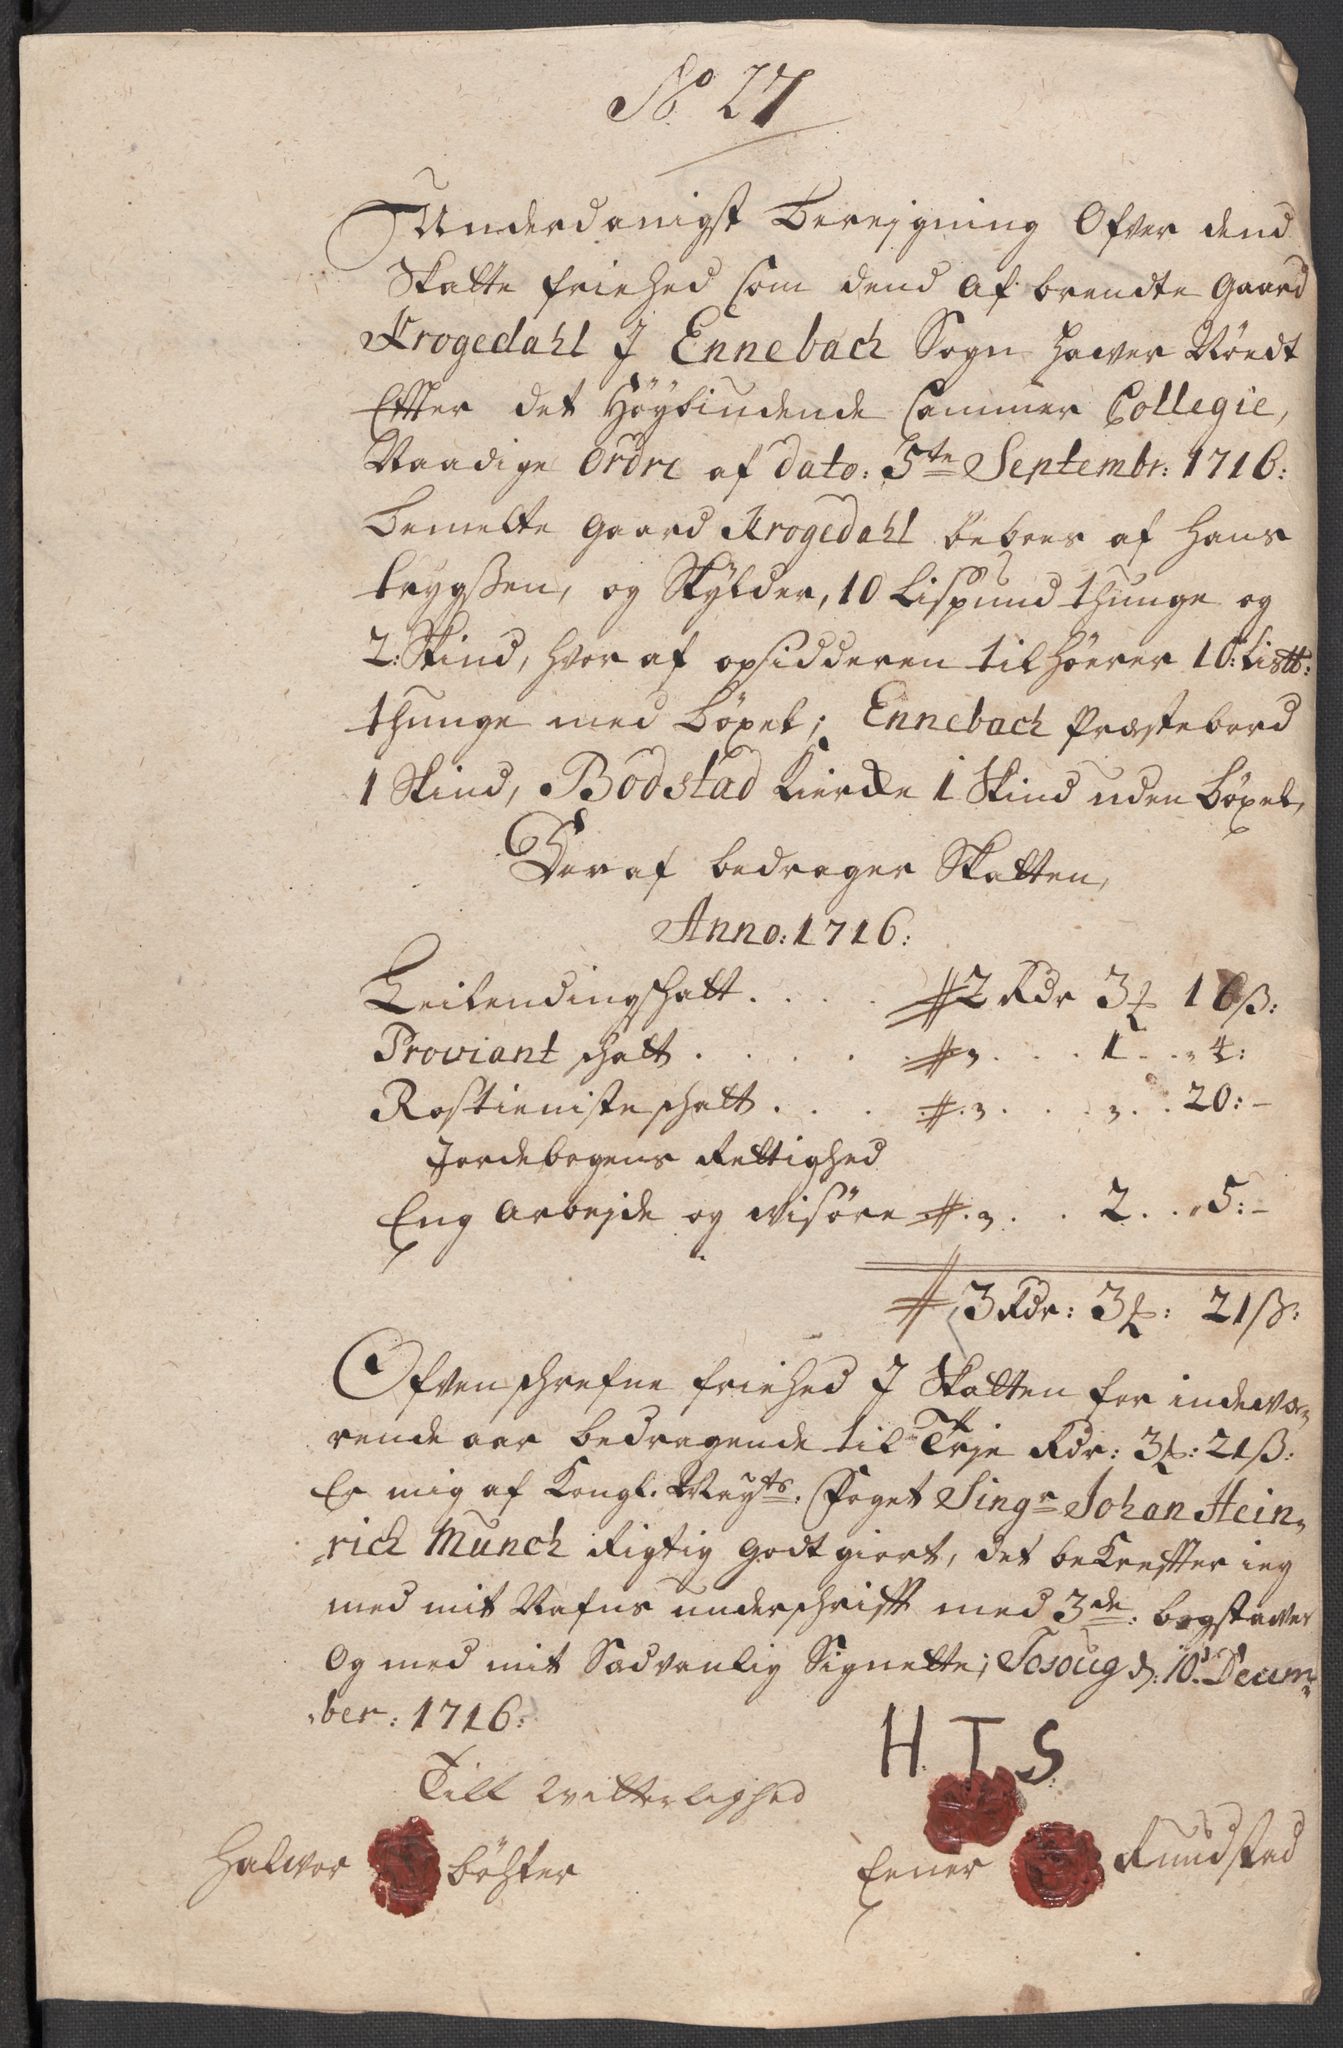 No 27
Underdanigst Beregning Ofver dend
Skatte friehed som dend af brendte gaard
Krogedahl J Ennebach Sogn hawer Nÿdt
Effter det Höybiudende Cammer Collegie,
Naadige Ordre af dato: 5te Septembr: 1716:
bemelte gaard Krogedahl beboes af Hans
trygßen, og Skÿlder, 10 Lispund thunge og
2: Skind, hvor af opsidderen tilhörer 10: Lis℔:
thunge med böxel; Ennebach Præstebord
1 Skind, Bodstad Kircke 1 Skind uden böxel,
Deraf bedrager Skatten,
Anno: 1716:
Leilendingschatt . . . . # 2 Rdr 3 ƶ 16 ß:
Proviant schatt . . . . . # „ . . . 1 . . „ 4:
Rostieniste schatt . . . . # . „ . . . „ . . 20: –
Jordebogens Rettighed
Eng Arbejde og wisöre # . „ . . 2 . . „ 5: –
# 3 Rdr: 3 ƶ: 21 ß:
Ofvenschrefne friehed J Skatten for indewæ„
rende aar bedragende til Trje Rdr: 3 ƶ: 21 ß:
Er mig af Kongl. Mayts: Foget Singr Johan Hein„
„rich Munch Rigtig godt giort, det bekreffter ieg
med mit Nafns underschrifft med 3de: bogstawer
Og med mit Sædvanlig Signette; Tosoug d: 10: Decem„
„ber: 1716:
H. T. S.
Till witterlighed
Halwor böhler
Eener Rundstad